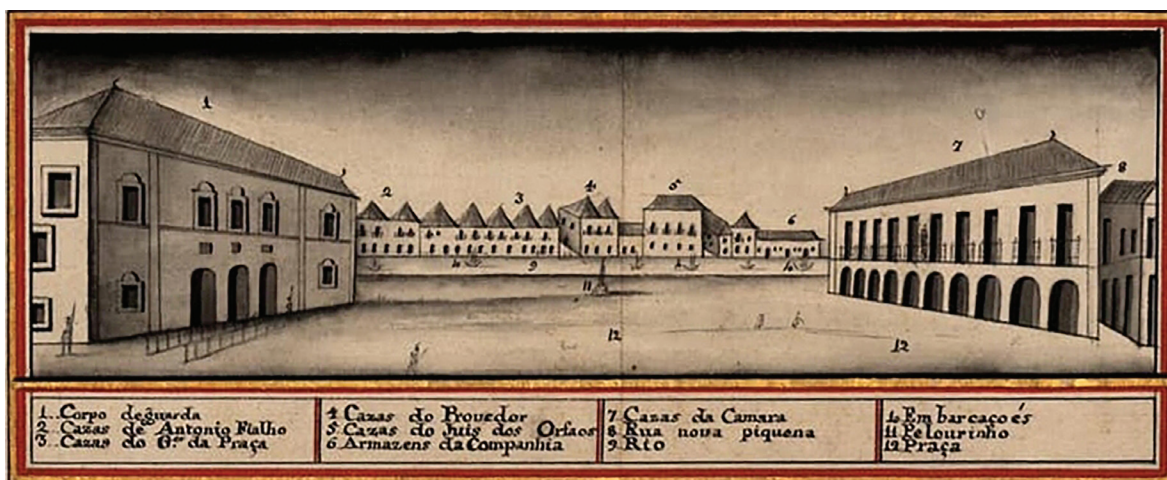 1
7
8
2
3
4
5
6
10
9
10
11
12
12
1..Corpo de guarda
2 Cazas de Antonio Fialho
3 Cazas do G.or da Praça
4 Cazas do Provedor
5 Cazas do Juis dos Orfaos
6 Armazens da Companhia
7 Cazas da Camara
8 Rua nova piquena
9 Rio
10 Embarcaçoés
11 Pelourinho
12 Praça